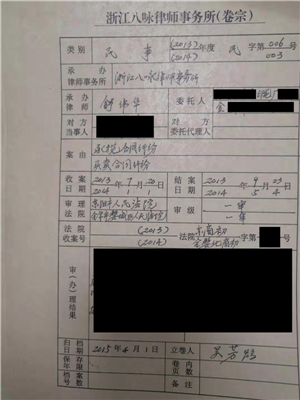 浙江八咏律师事务所(卷宗)
类别 民事 (2013)年度 民 字第 006
(2014) 003
承办律师事务所 浙江八咏律师事务所
承办律师 舒伟华 委托人
对方当事人 对方委托代理人
案由 承揽合同纠纷
买卖合同纠纷
收案日期 2013年7月 结案日期 2013年9月23日
2014 1 2014 5 4
审理法院 东阳市人民法院 审级 一审
金华市婺城区人民法院 一审
法院收案号 (2013) 法院 东商初 字第 号
(2014)
审(办)理结果
归档日期 2015年4月1日 立卷人 吴芳
保存年限 卷内页数
档案号 备注